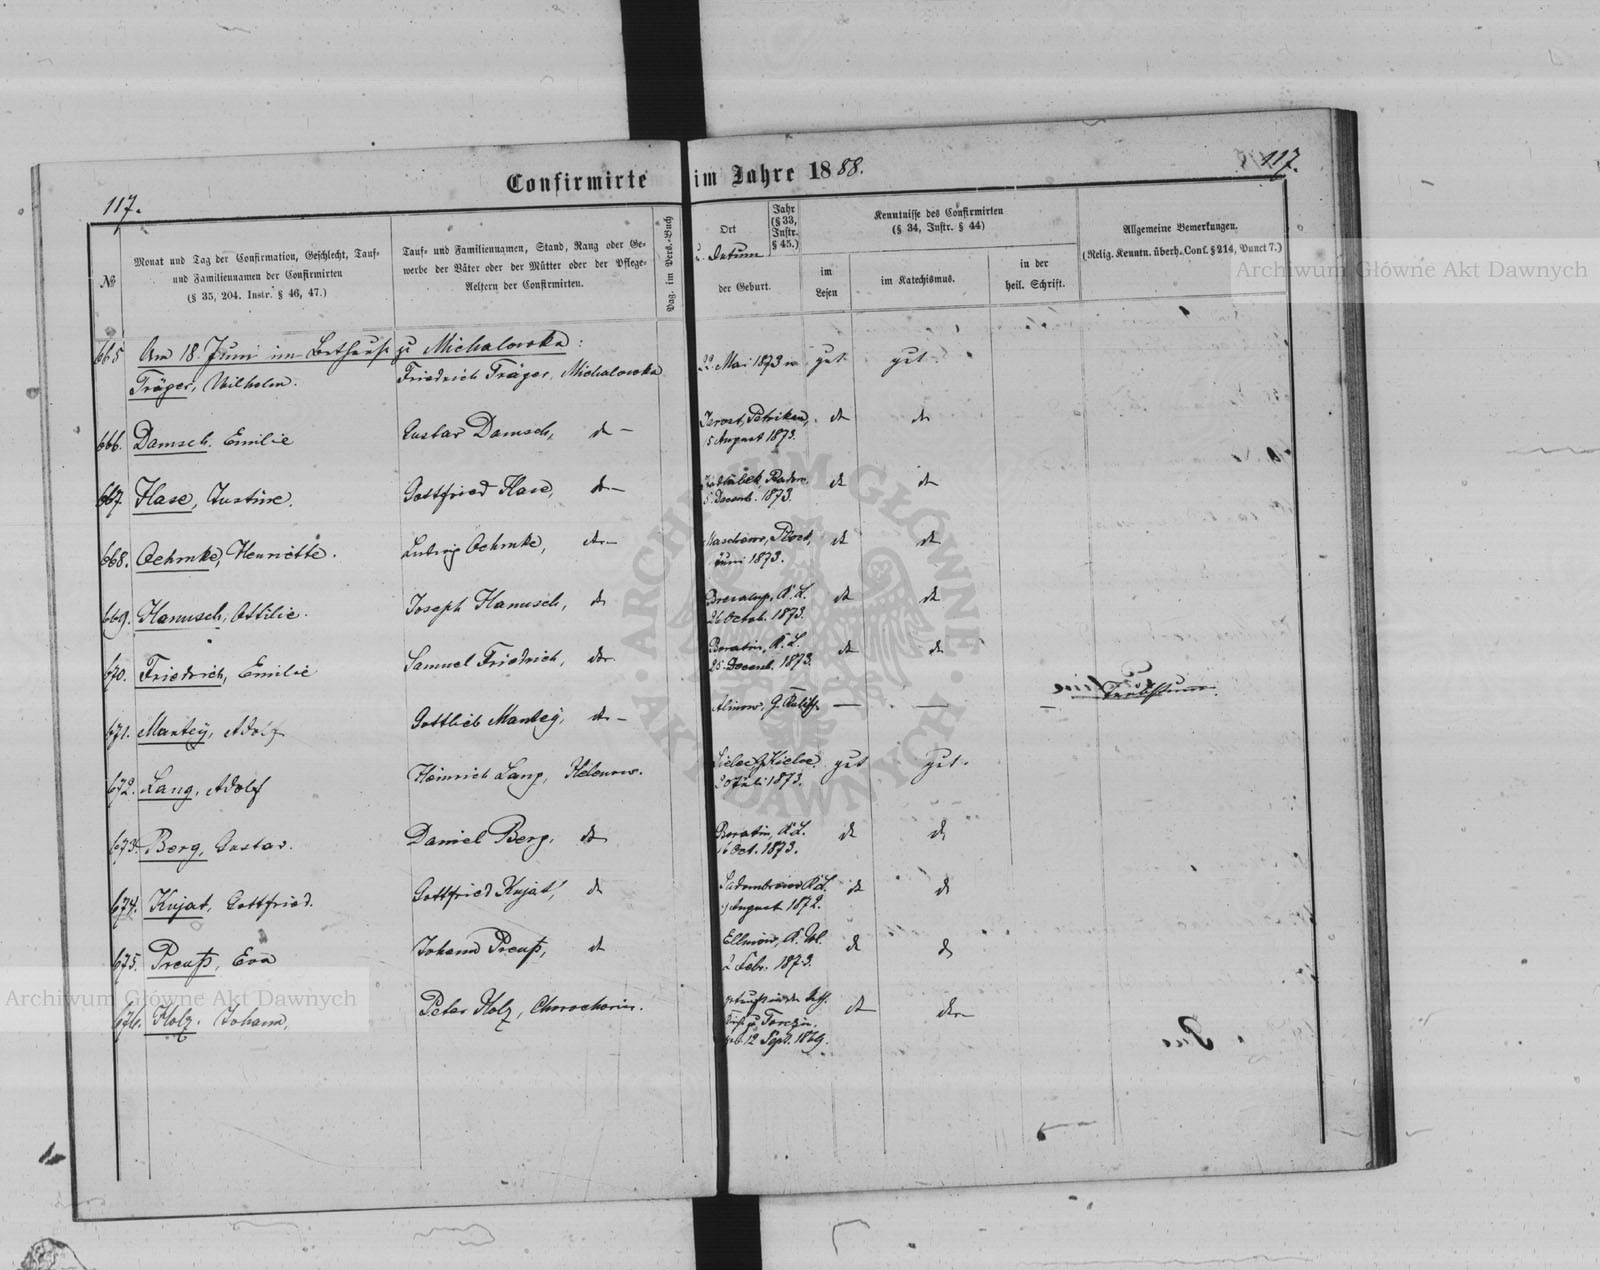 Confirmirte im Jahre 1888.
117.
117.
№
Monat und Tag der Confirmation, Geschlecht, Tauf-
und Familiennamen der Confirmirten
(§ 35, 204. Instr. § 46, 47.)
Tauf- und Familiennamen, Stand, Rang oder Ge-
werbe der Väter oder der Mütter oder der Pflege-
Aeltern der Confirmirten.
Pag. im Pers.-Buch
Ort
Datum
der Geburt.
Jahr
(§ 33,
Instr.
§ 45.)
Kenntnisse des Confirmirten
(§ 34, Instr. § 44)
im
Lesen
im Katechismus.
in der
heil. Schrift.
Allgemeine Bemerkungen.
(Relig. Kenntn. überh. Conf. § 214, Punct 7.)
Archiwum Główne Akt Dawnych
Am 18. Juni im Bethause zu Michalowka:
665 Träger, Wilhelm. Friedrich Träger, Michalowka 22. Mai 1873 gut gut
666. Damsch. Emilie Gustav Damsch, do Petrikau,
5 August 1873. do do
667. Hase, Justine. Gottfried Hase, do
Decemb. 1873. do do
668. Oehmke, Henriette. Ludwig Oehmke, do
Juni 1873. do do
669. Hanusch, Ottilie. Joseph Hanusch, do K. L.
26 Octob. 1873. do do
670. Friedrich, Emilie Samuel Friedrich, do Boratin, K. L.
25 Decemb. 1873. do do
671. Mantey, Adolf Gottlieb Mantey, do G. Kalisch — —
Taubstumm.
672. Lang, Adolf Heinrich Lang, Helenow. Kielce
20 Juli 1873. gut gut.
673. Berg, Gustav. Daniel Berg, do Boratin, K. L.
16 Oct. 1873. do do
674. Kujat, Gottfried. Gottfried Kujat, do K. L.
August 1872. do do
675. Preuß, Eva Johann Preuß, do
2 Febr. 1873. do do
676. Holz. Johann, Peter Holz,
zu Torczin.
12 Sept. 1869. do do
Archiwum Główne Akt Dawnych
ARCHIWUM GŁÓWNE AKT DAWNYCH